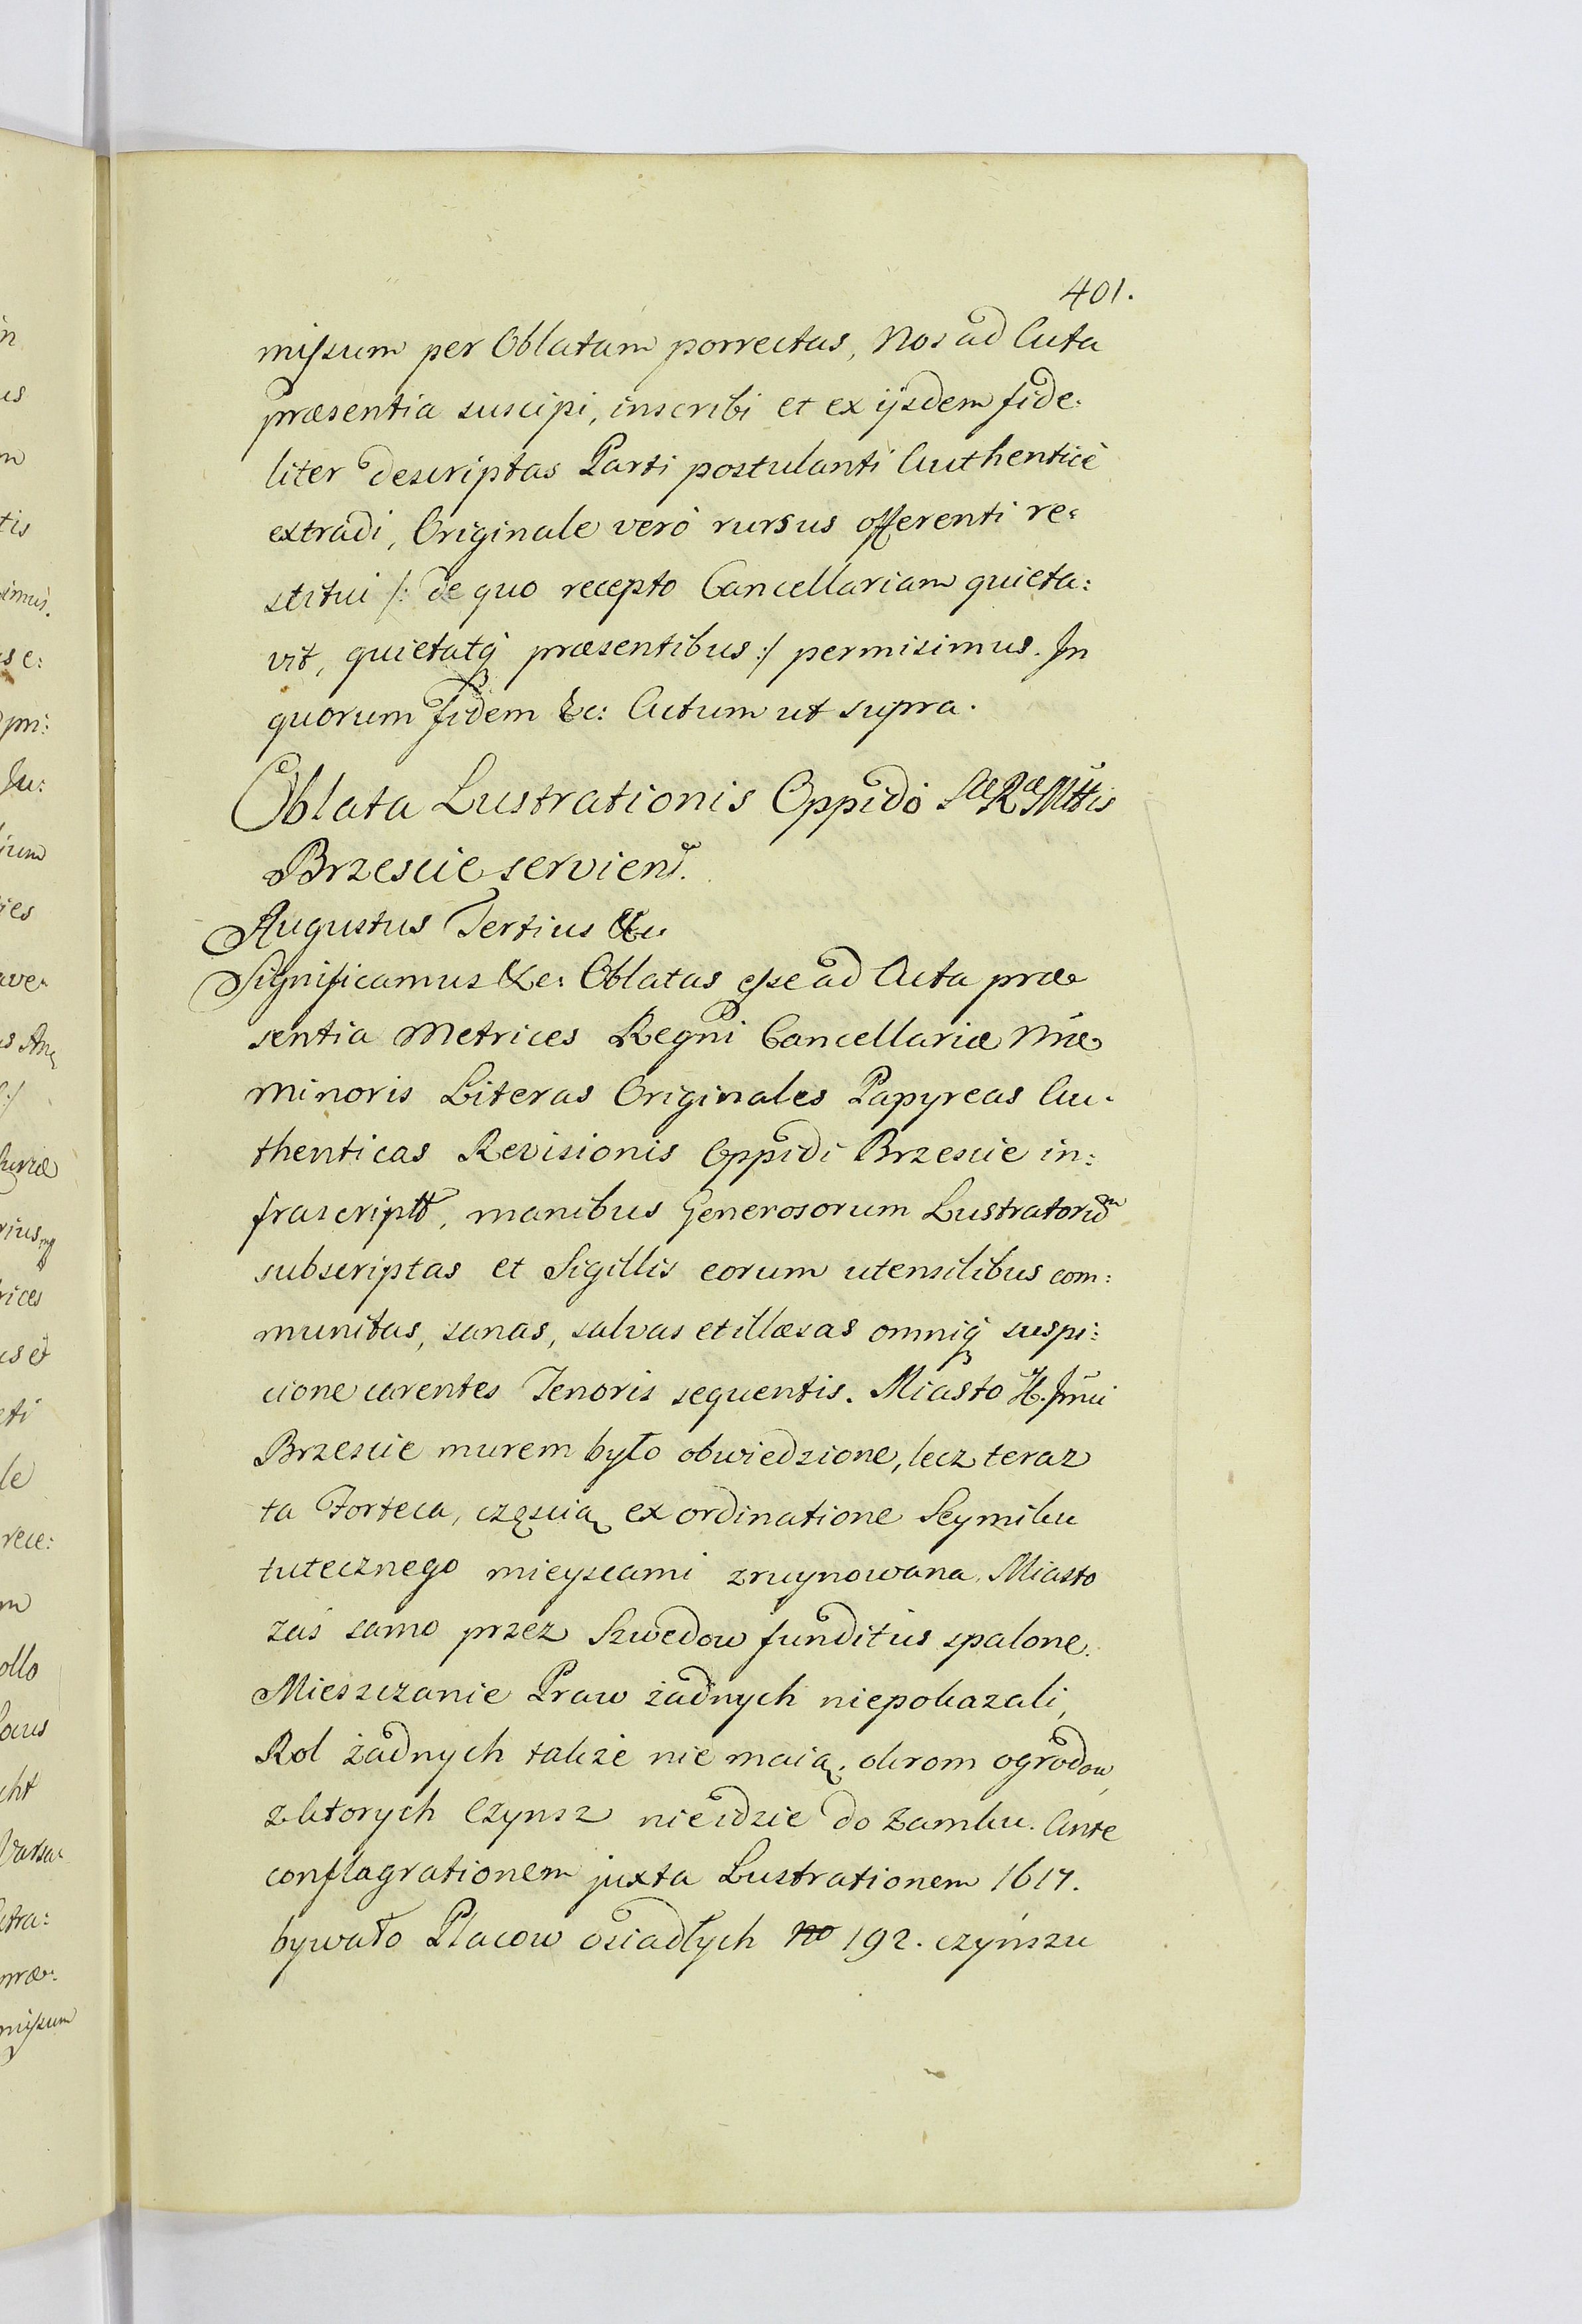 401.
missum per Oblatam porrectas, Nos ad Acta
præsentia suscipi, inscribi et ex ijsdem fide:
liter descriptas Parti postulanti Authenticè
extradi, Originale verò rursus offerenti re:
stitui /: de quo recepto Cancellariam quieta:
vit, quietatq præsentibus :/ permisimus. In
quorum fidem &c: Actum ut supra.
Oblata Lustrationis Oppido Sæ Ræ Mttis
Brzescie serviend.
Augustus Tertius &c
Significamus &c: Oblatas esse ad Acta præ
sentia Metrices Regni Cancellariæ Nræ
Minoris Literas Originales Papyreas Au:
thenticas Revisionis Oppidi Brzescie in:
frascriptt, manibus Generosorum Lustratorum
subscriptas et Sigillis eorum utensilibus com:
munitas, sanas, salvas et illæsas omniq suspi:
cione carentes Tenoris sequentis. Miasto
Brzescie murem było obwiedzione, lecz teraz
ta Forteca, częscią ex ordinatione Seymiku
tutecznego mieyscami zruynowana. Miasto
zaś samo przez Szwedow funditùs spalone.
Mieszczanie Praw żadnych niepokazali,
Rol żadnych także nie maią, okrom ogrodow,
z ktorych Czynsz nieidzie do Zamku. Ante
conflagrationem juxta Lustrationem 1617.
bywało Placow osiadłych No 192. czynszu
in
us
m
tis
simus.
se:
pri:
Ju:
ium
ies
ave:
s An
:/
Curiæ
rius
rices
us et
eti
le
rece:
m
ollo
Locus
cht
Varsa:
Extra:
præ:
missum